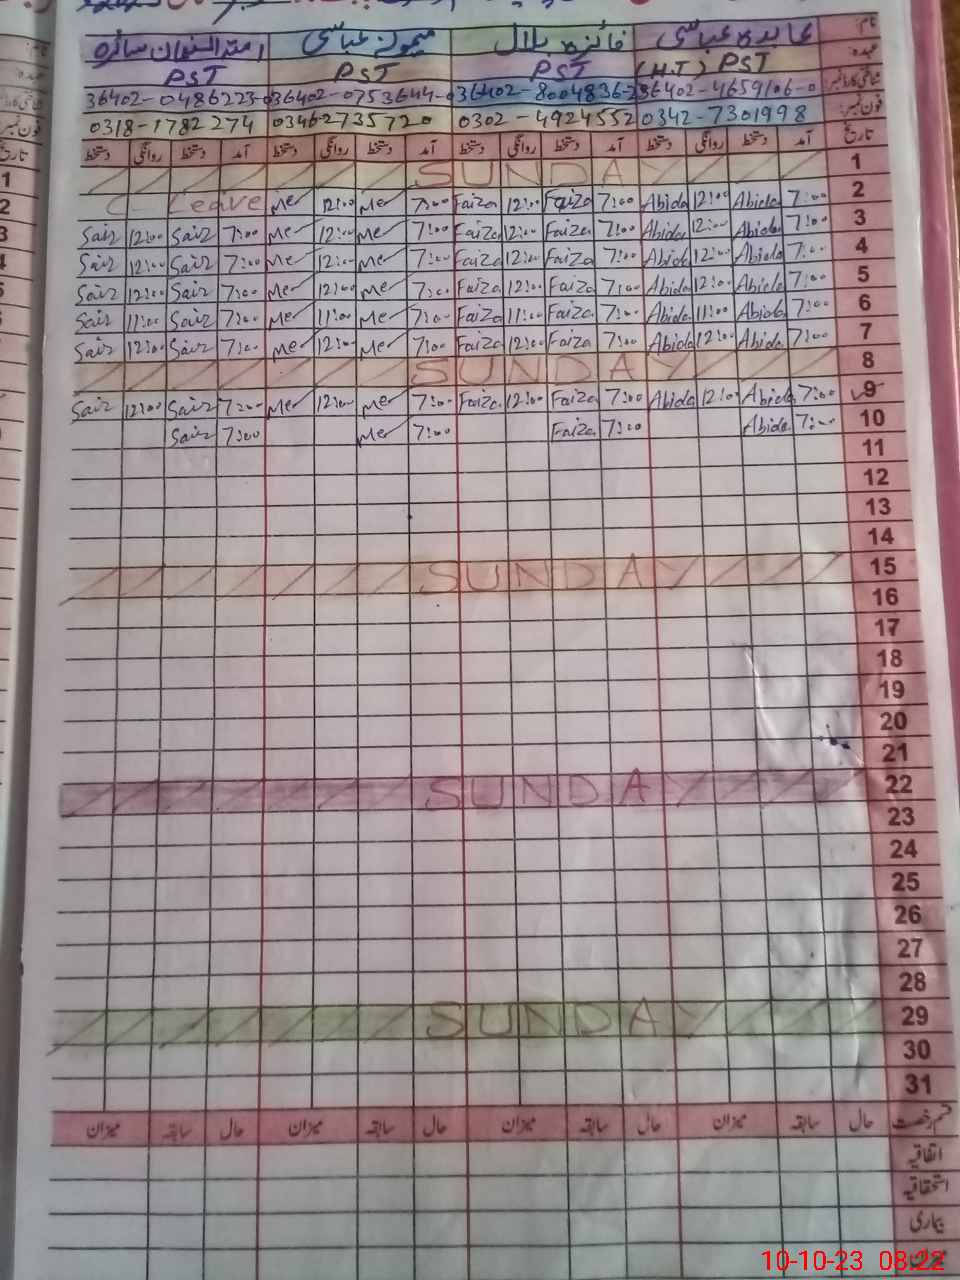 نام: عابدہ عباسی فائزہ بلال میمونہ عباسی امتہ السبحان سائرہ
عہدہ: (H.T) PST PST PST PST
36402-4659106-0 36402-8004836-2 36402-0753644-0 36402-0486223-0
فون نمبر: 0342-7301998 0302-4924552 0346-2735720 0318-1782274
تاریخ آمد دستخط روانگی دستخط آمد دستخط روانگی دستخط آمد دستخط روانگی دستخط آمد دستخط روانگی دستخط
1 SUNDAY
2 7:00 Abida 12:00 Abida 7:00 Faiza 12:00 Faiza 7:00 Me 12:00 Me C- Leave
3 7:00 Abida 12:00 Abida 7:00 Faiza 12:00 Faiza 7:00 Me 12:00 Me 7:00 Sair 12:00 Sair
4 7:00 Abida 12:00 Abida 7:00 Faiza 12:00 Faiza 7:00 Me 12:00 Me 7:00 Sair 12:00 Sair
5 7:00 Abida 12:00 Abida 7:00 Faiza 12:00 Faiza 7:00 Me 12:00 Me 7:00 Sair 12:00 Sair
6 7:00 Abida 11:00 Abida 7:00 Faiza 11:00 Faiza 7:00 Me 11:00 Me 7:00 Sair 11:00 Sair
7 7:00 Abida 12:00 Abida 7:00 Faiza 12:00 Faiza 7:00 Me 12:00 Me 7:00 Sair 12:00 Sair
8 SUNDAY
9 7:00 Abida 12:00 Abida 7:00 Faiza 12:00 Faiza 7:00 Me 12:00 Me 7:00 Sair 12:00 Sair
10 7:00 Abida 7:00 Faiza 7:00 Me 7:00 Sair
11
12
13
14
15 SUNDAY
16
17
18
19
20
21
22 SUNDAY
23
24
25
26
27
28
29 SUNDAY
30
31
قسم رخصت حال سابقہ میزان حال سابقہ میزان حال سابقہ میزان حال سابقہ میزان
اتفاقیہ
استحقاقیہ
بیماری
میزان
10-10-23 08:22